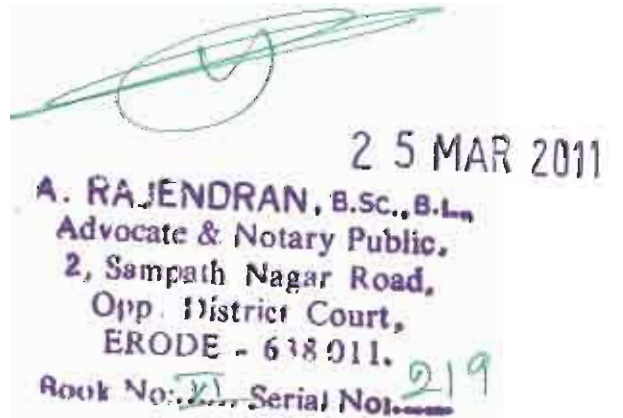 25 MAR 2011
A. RAJENDRAN, B.Sc., B.L.,
Advocate & Notary Public,
2, Sampath Nagar Road,
Opp. District Court,
ERODE - 638 011.
Book No: VI Serial No: 219